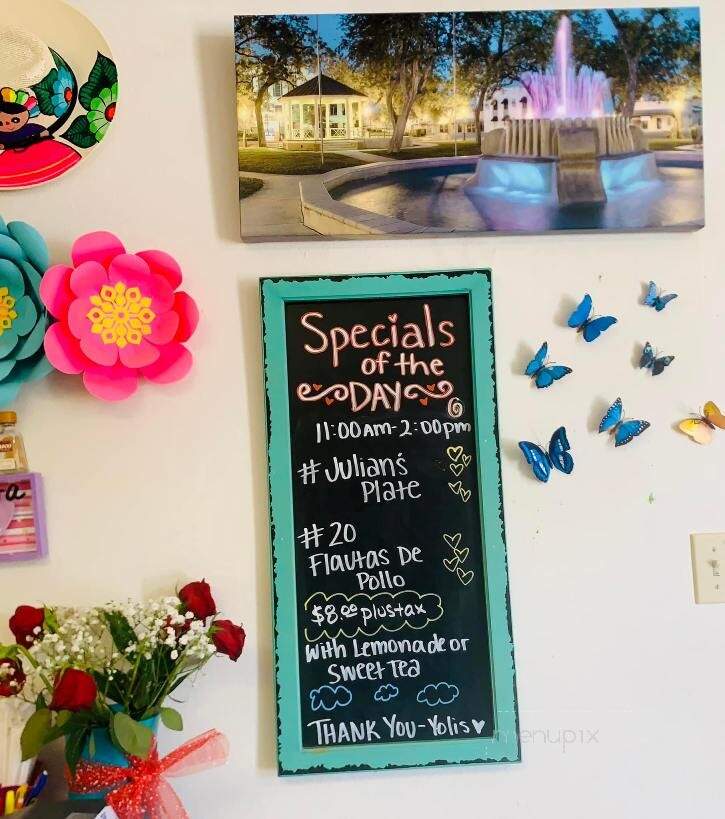 Specials
of the
DAY
11:00AM-2:00pm
# Julian's
Plate
#20
Flautas De
Pollo
$8.00 plus tax
with Lemonade or
Sweet Tea
THANK YOU-Yolis
menupix